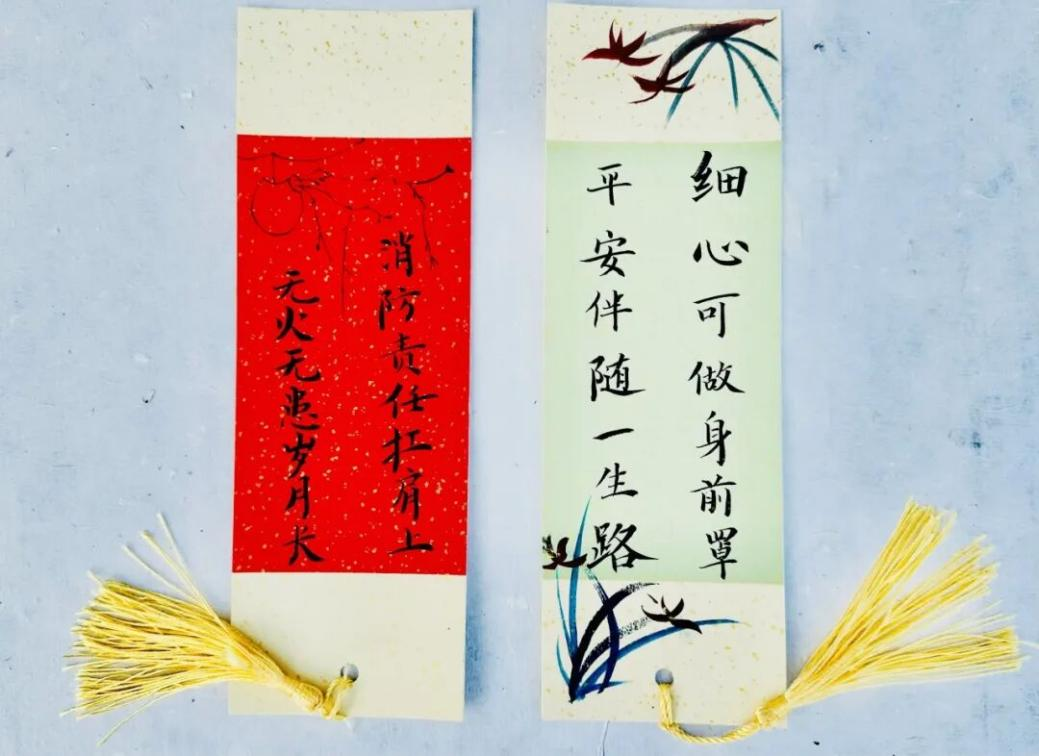 消防责任扛肩上
无火无患岁月长
细心可做身前罩
平安伴随一生路